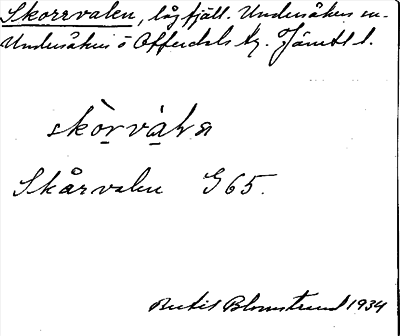 Skorrvalen, lågfjäll. Undersåkers sn.
Undersåkers o Offerdals tg. Jämtl l.
skòrvàln
Skårvalen G65.
Bertil Blomstrand 1934